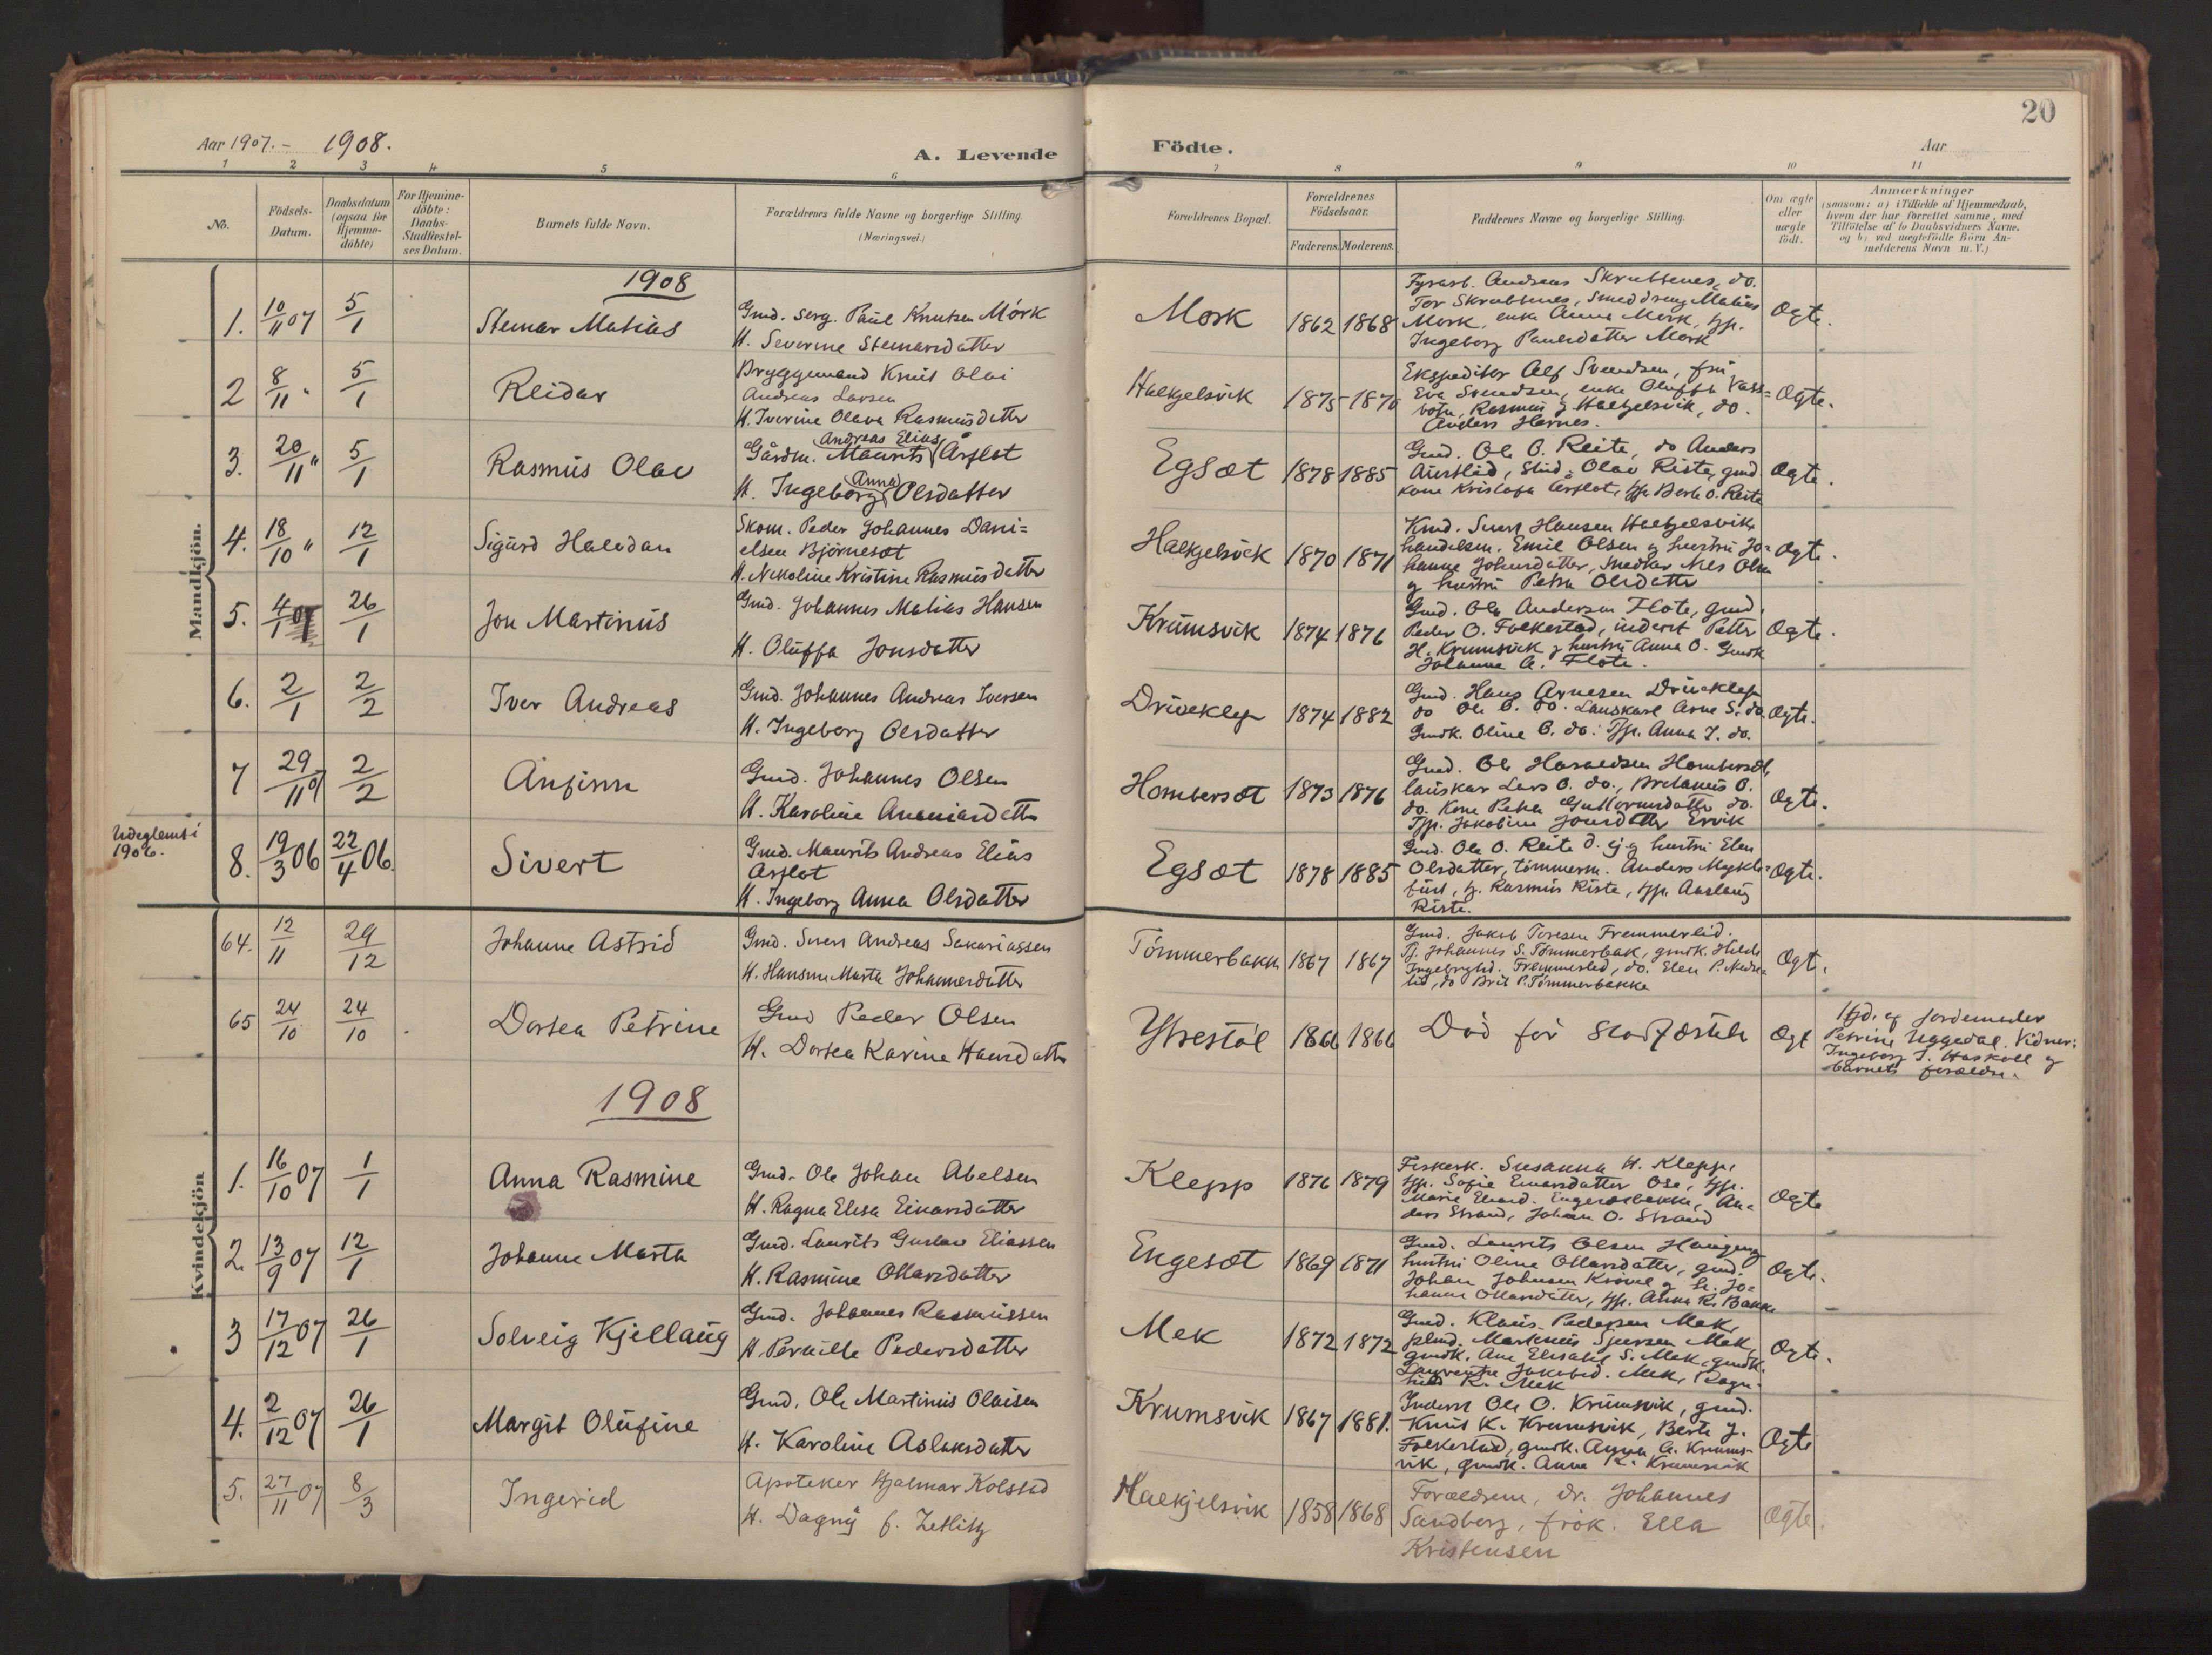 20
Aar 1907.- 1908.
A. Levende Födte.
Aar
1 2 3 4 5 6 7 8 9 10 11
No.
Födsels-
Datum.
Daabsdatum
(ogsaa for
Hjemme-
döbte)
For Hjemme-
döbte:
Daabs-
Stadfæstel-
ses Datum.
Barnets fulde Navn.
Forældrenes fulde Navne og borgerlige Stilling.
(Næringsvei.)
Forældrenes Bopæl.
Forældrenes
Födselsaar.
Faderens. Moderens.
Faddernes Navne og borgerlige Stilling.
Om ægte
eller
uægte
födt.
Anmærkninger
(saasom: a) i Tilfælde af Hjemmedaab,
hvem der har forrettet samme, med
Tilföielse af to Daabsvidners Navne,
og b) ved uægtefödte Börn An-
melderens Navn m. V.)
Mandkjön.
1908
1. 10/11 07 5/1 Steinar Matias
Gmd. serg. Paul Knutsen Mörk
H. Severine Steinarsdatter
Mork 1862 1868
Fyrass. Andreas Skrubbenes, do.
Tor Skrubbenes, smeddreng Matias
Mork, enke Anna Mork, tjp.
Ingeborg Paulsdatter Mork
Ægte.
2 8/11 " 5/1 Reidar
Bryggemand Knut Olai
Andreas Larsen
H. Iverine Olava Rasmusdatter
Halkjelsvik 1875 1870
Ekspeditor Alf Svendsen, fru
Eva Svendsen, enke Oluffa Vass=
botn, Rasmus J. Halkjelsvik, do.
Anders Hovnes.
Ægte.
3. 20/11 " 5/1 Rasmus Olav
Andreas Elias
Gårdm. Maurits Årflot
Anna
H. Ingeborg Olsdatter
Egsæt 1878 1885
Gmd. Ole O. Reite, do Anders
Aurstad, stud. Olav Riste, gmd
kone Kristofa Årflot, tjp. Berte O. Reite
Ægte.
4. 18/10 " 12/1 Sigurd Halvdan
Skom. Peder Johannes Dani=
elsen Björneset
H. Nikoline Kristine Rasmusdatter
Halkjelsvik 1870 1871
Kmd. Sivert Hansen Halkjelsvik
handelsm. Emil Olsen og hustru Jo=
hanne Johnsdatter, snedker Nils Olsen
og hustru Petra Olsdatter
Ægte.
5. 4/1 26/1 Jon Martinus
Gmd. Johannes Matias Hansen
H. Oluffa Jonsdatter
Krumsvik 1874 1876
Gmd. Ole Andersen Flote, gmd.
Peder O. Folkestad, inderst Petter
H. Krumsvik og hustru Anna O. Gmdk
Johanne A. Flote.
Ægte.
6. 2/1 2/2 Iver Andreas
Gmd. Johannes Andreas Iversen
H. Ingeborg Olsdatter
Driveklep 1874 1882
Gmd. Hans Arnesen Driveklep
do Ole O. do. Lauskarl Arne S. do.
Gmdk. Oline O. do: Tjp. Anna I. do.
Ægte.
7 29/11 07 2/2 Anfinn
Gmd. Johannes Olsen
H. Karoline Ananiasdatter
Hombersæt 1873 1876
Gmd. Ole Haraldsen Hombersæt,
lauskar Lars O. do., Bretanus O.
do. Kone Petra Guttormsdatter do.
Tjp. Jakobine Jonsdatter Ervik
Ægte.
Udeglemt i
1906.
8. 19/3 06 22/4 06. Sivert
Gmd. Maurits Andreas Elias
Årflot
H. Ingeborg Anna Olsdatter
Egsæt 1878 1885
Gmd. Ole O. Reite d. ej og hustru Elen
Olsdatter, tömmerm. Anders Mykle=
bust, g. Rasmus Riste, tjp. Aaslaug
Riste.
Ægte.
Kvindekjön
64. 12/11 29/12 Johanne Astrid
Gmd. Sivert Andreas Sakariassen
H. Hansine Marta Johannesdatter
Tömmerbakk 1867 1867
Gmd. Jakob Toresen Fremmerlid.
Tj. Johannes S. Tömmerbak, gmdk. Hilde
Ingebrgtsd. Fremmerlid, do. Elen P. Nedre=
lid, do Brit P. Tömmerbakke
Ægte.
65 24/10 24/10 Dortea Petrine
Gmd Peder Olsen
H. Dortea Karine Hansdatter
Ytrestöl 1866 1866
Död för stadfæstelse
Ægt
Hjd. af jordemoder
Petrine Uggedal. Vidner:
Ingeborg J. Haskoll og
barnets forældre.
1908
1. 16/10 07 1/1 Anna Rasmine
Gmd. Ole Johan Abelsen
H. Ragna Elisa Einarsdatter
Klepp 1876 1879
Fiskerk. Susanna H. Klepp,
tjp. Sofie Einarsdatter Ose, tjp.
Marie Elvard. Engesetbakke, An=
ders Strand, Johan O. Strand
Ægte
2. 13/9 07 12/1 Johanne Marta
Gmd. Laurits Gustav Eliassen
H. Rasmine Ottarsdatter
Engesæt 1869 1871
Gmd. Laurits Olsen Haugen og
hustru Oline Ottarsdatter, gmd.
Johan Johnsen Krövel og h. Jo=
hanne Ottarsdatter, tjp. Anna R. Bakke
Ægte.
3 17/12 07 26/1 Solveig Kjellaug
Gmd. Johannes Rasmussen
H. Pernille Pedersdatter
Mek 1872 1872
Gmd. Klaus Pedersen Mek,
plmd. Markus Sjursen Mek,
gmdk. Ane Elisabet S. Mek, gmdk.
Laurentse Jakobsd. Mek, Ragn-
hild K. Mek
Ægte.
4. 2/12 07 26/1 Margit Olufine
Gmd. Ole Martinus Olaisen
H. Karoline Aslaksdatter
Krumsvik 1867 1881.
Inderst Ole O. Krumsvik, gmd.
Knut K. Krumsvik, Berte J.
Folkestad, gmdk. Anna A. Krums-
vik, gmdk. Anne K. Krumsvik
Ægte
5. 27/11 07 8/3 Ingerid
Apoteker Hjalmar Kolstad
H. Dagny f. Zetlitz
Halkjelsvik 1858 1868
Forældrene, dr. Johannes
Sandberg, frøk. Ella
Kristensen
Ægte.